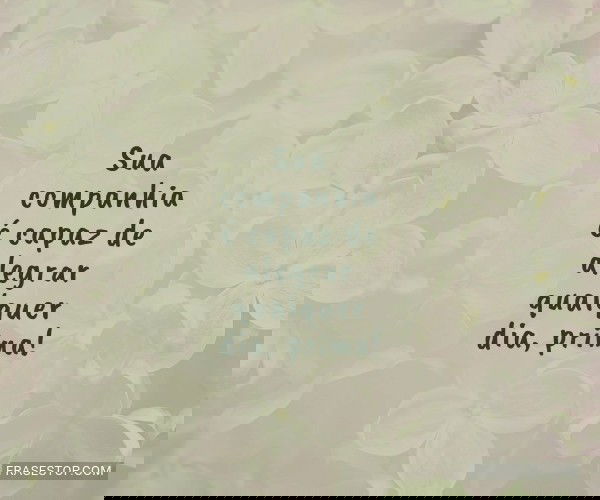 Sua
companhia
é capaz de
alegrar
qualquer
dia, prima!
FRASESTOP.COM